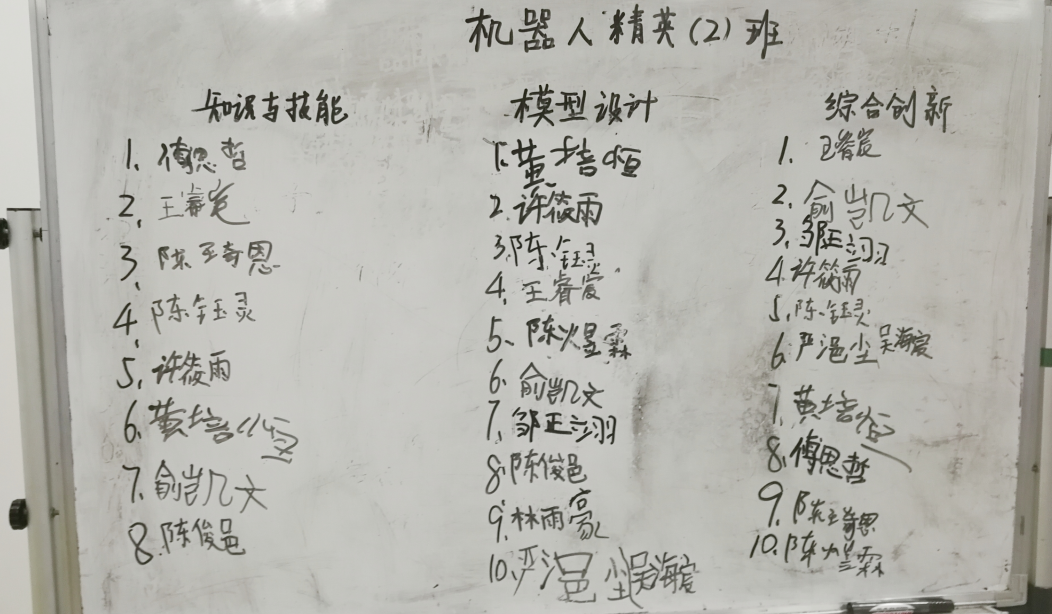 机器人精英(2)班
知识与技能
1. 傅思哲
2. 王睿宸
3. 陈王奇恩
4. 陈钰灵
5. 许筱雨
6. 黄培恒
7. 俞凯文
8. 陈俊邑
模型设计
1. 黄培恒
2. 许筱雨
3. 陈钰灵
4. 王睿宸
5. 陈煜霖
6. 俞凯文
7. 邹正翊
8. 陈俊邑
9. 林雨豪
10. 严浥尘 吴海宸
综合创新
1. 王睿宸
2. 俞凯文
3. 邹正翊
4. 许筱雨
5. 陈钰灵
6. 严浥尘 吴海宸
7. 黄培恒
8. 傅思哲
9. 陈王奇恩
10. 陈煜霖